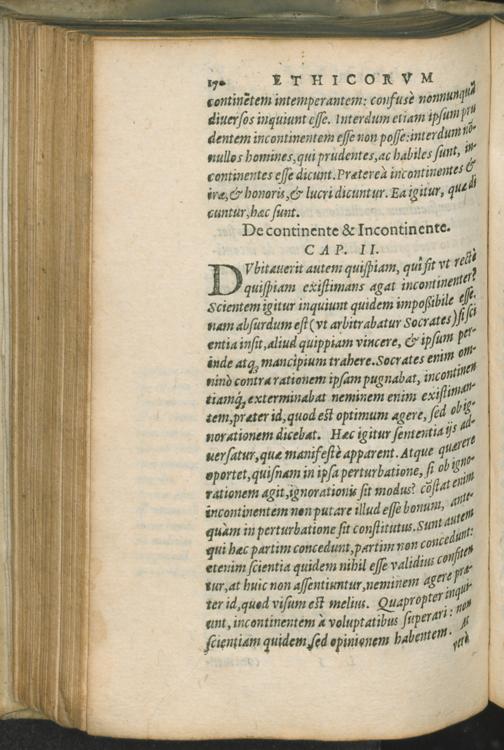 170 ETHICORVM
continētem intemperantem: confusè nonnunquā
diuersos inquiunt esse. Interdum etiam ipsum pru
dentem incontinentem esse non posse: interdum nō-
nullos homines, qui prudentes, ac habiles sunt, in-
continentes esse dicunt. Prætereà incontinentes &
iræ, & honoris, & lucri dicuntur. Ea igitur, quæ di
cuntur, hæc sunt.
De continente & Incontinente.
CAP. II.
DVbitauerit autem quispiam, qui sit vt rectè
quispiam existimans agat incontinenter?
Scientem igitur inquiunt quidem impoßibile esse.
nam absurdum est (vt arbitrabatur Socrates) si sci
entia insit, aliud quippiam vincere, & ipsum per-
inde atq, mancipium trahere. Socrates enim om-
ninò contra rationem ipsam pugnabat, incontinen
tiamq́, exterminabat neminem enim existiman-
tem, præter id, quod est optimum agere, sed ob ig-
norationem dicebat. Hæc igitur sententia ijs ad-
uersatur, quæ manifestè apparent. Atque quærere
oportet, quisnam in ipsa perturbatione, si ob igno-
rationem agit, ignorationis sit modus? cōstat enim
incontinentem non putare illud esse bonum, ante-
quàm in perturbatione sit constitutus. Sunt autem
qui hæc partim concedunt, partim non concedunt:
etenim scientia quidem nihil esse validius confiten
tur, at huic non assentiuntur, neminem agere præ-
ter id, quod visum est melius. Quapropter inqui-
unt, incontinentem à voluptatibus superari: non
scientiam quidem, sed opinionem habentem. At
verò